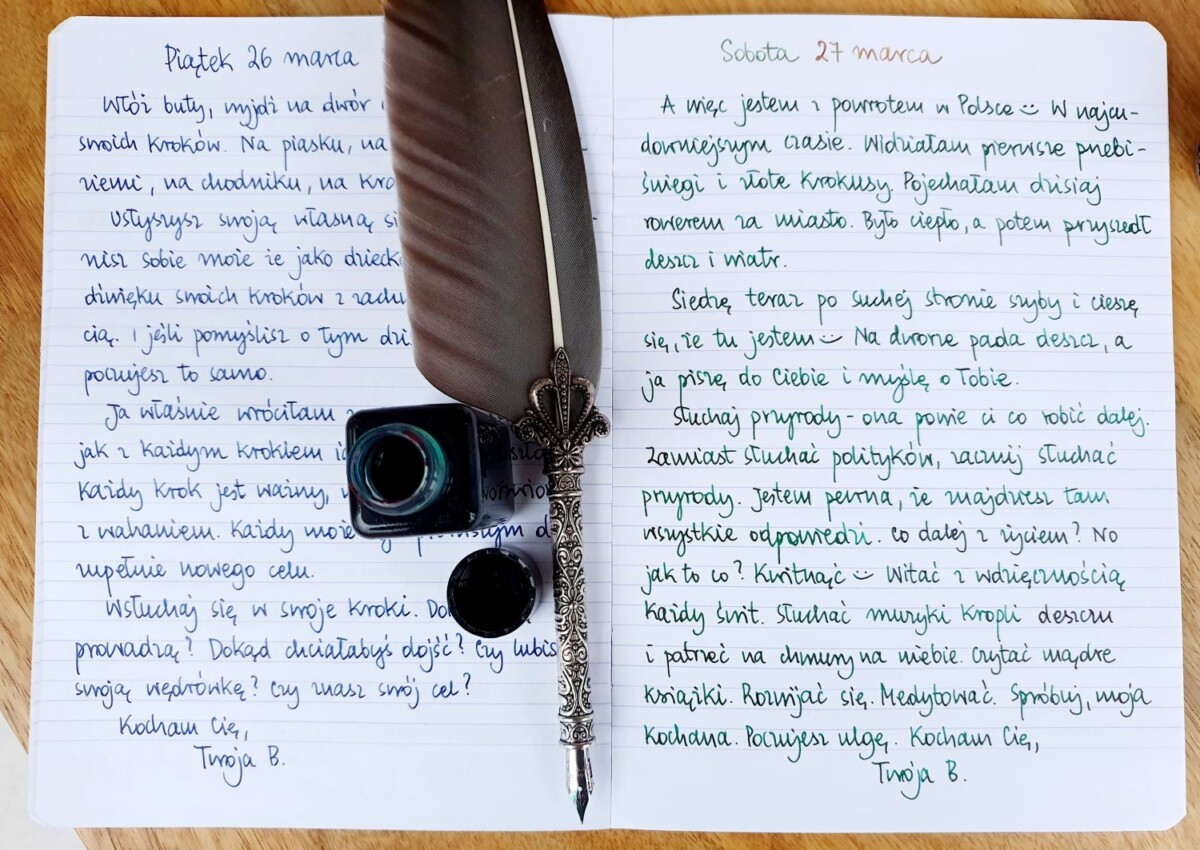 Piątek 26 marca
Włóż buty, wyjdź na dwór
swoich kroków. Na piasku, na
ziemi, na chodniku, na
Usłyszysz swoją własną
nisz sobie może że jako
dźwięku swoich kroków z
cią. I jeśli pomyślisz o tym
poczujesz to samo.
Ja właśnie wróciłam z
jak z każdym krokiem
Każdy krok jest ważny,
z wahaniem. Każdy może
zupełnie nowego celu.
Wsłuchaj się w swoje kroki.
prowadzą? Dokąd chciałabyś dojść? Czy lubisz
swoją wędrówkę? Czy znasz swój cel?
Kocham Cię,
Twoja B.
Sobota 27 marca
A więc jestem z powrotem w Polsce :) W najcu-
downiejszym czasie. Widziałam pierwsze przebi-
śniegi i złote krokusy. Pojechałam dzisiaj
rowerem za miasto. Było ciepło, a potem przyszedł
deszcz i wiatr.
Siedzę teraz po suchej stronie szyby i cieszę
się, że tu jestem :) Na dworze pada deszcz, a
ja piszę do Ciebie i myślę o Tobie.
Słuchaj przyrody - ona powie ci co robić dalej.
Zamiast słuchać polityków, zacznij słuchać
przyrody. Jestem pewna, że znajdziesz tam
wszystkie odpowiedzi. Co dalej z życiem? No
jak to co? Kwitnąć :) Witać z wdzięcznością
każdy świt. Słuchać muzyki kropli deszczu
i patrzeć na chmury na niebie. Czytać mądre
książki. Rozwijać się. Medytować. Spróbuj, moja
Kochana. Poczujesz ulgę. Kocham Cię,
Twoja B.